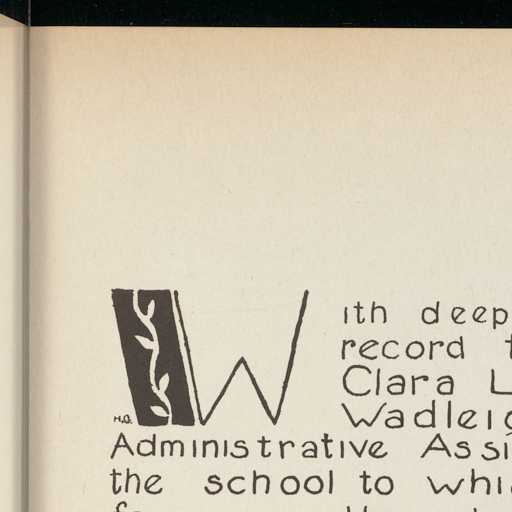 With deep
record t
Clara L
H.G. Wadleig
Administrative Assi
the school to whi